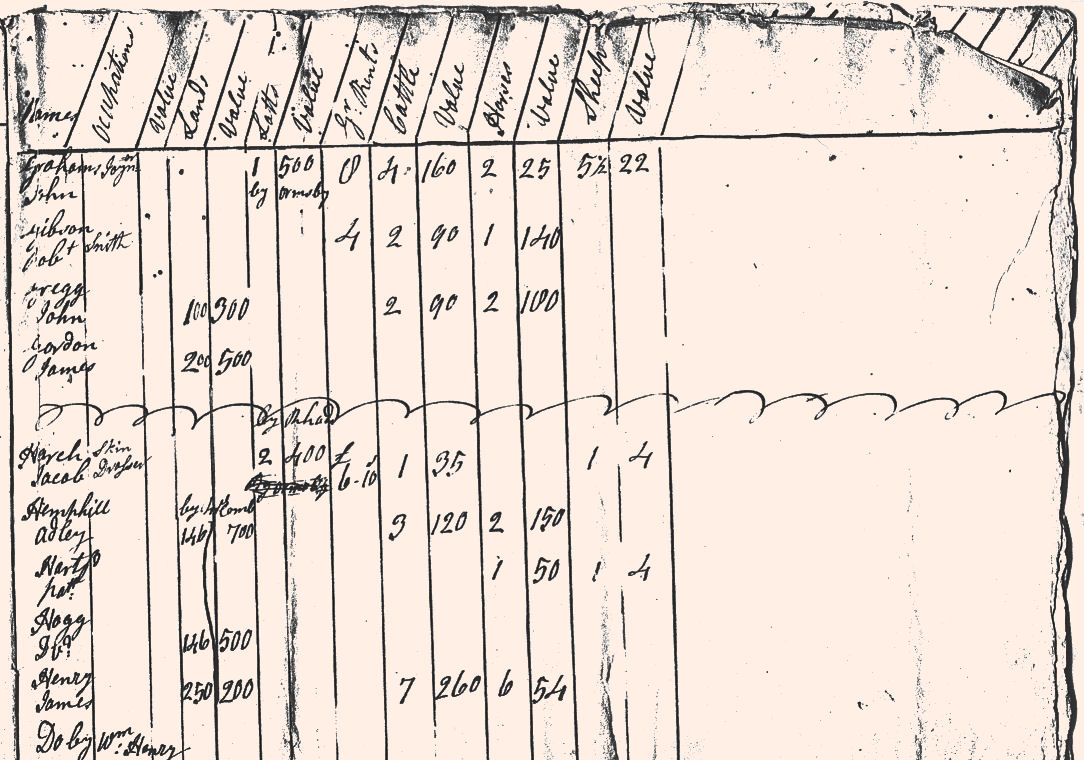 Names Occupations Value Lands Value Lotts Value Gr. Rents Cattle Value Horses Value Sheep Value
Graham 1 500 0 4 160 2 25 5½ 22
John by Ormsby
Gibson 4 2 90 1 140
Robt Smith
Gregg
John 100 300 2 90 2 100
Gordon
James 200 500
by
Harch Skin 2 400 £ s 1 35 1 4
Jacob Dresser 6-10
Hemphill by
Adley 146 700 3 120 2 150
Hart 1 50 1 4
patk
Hogg
146 500
Henry
James 250 200 7 260 6 54
Do by Wm Henry